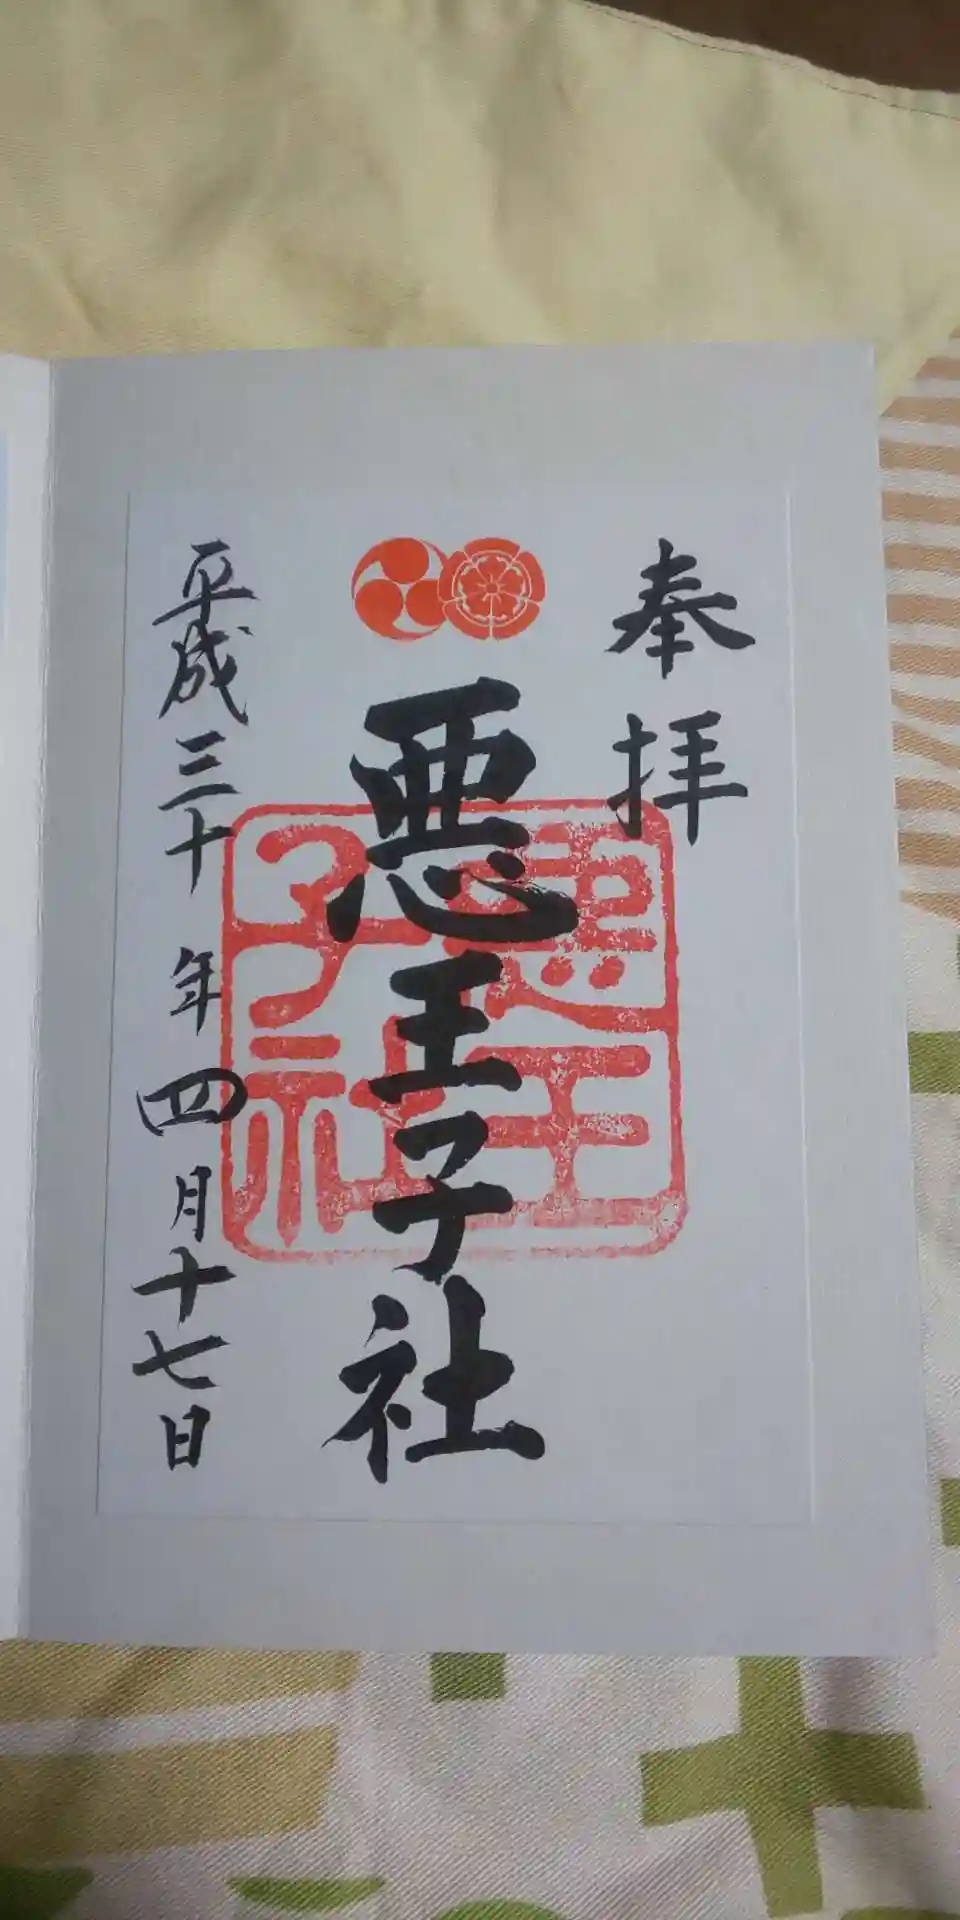 奉拝
悪王子社
悪王子社
平成三十年四月十七日